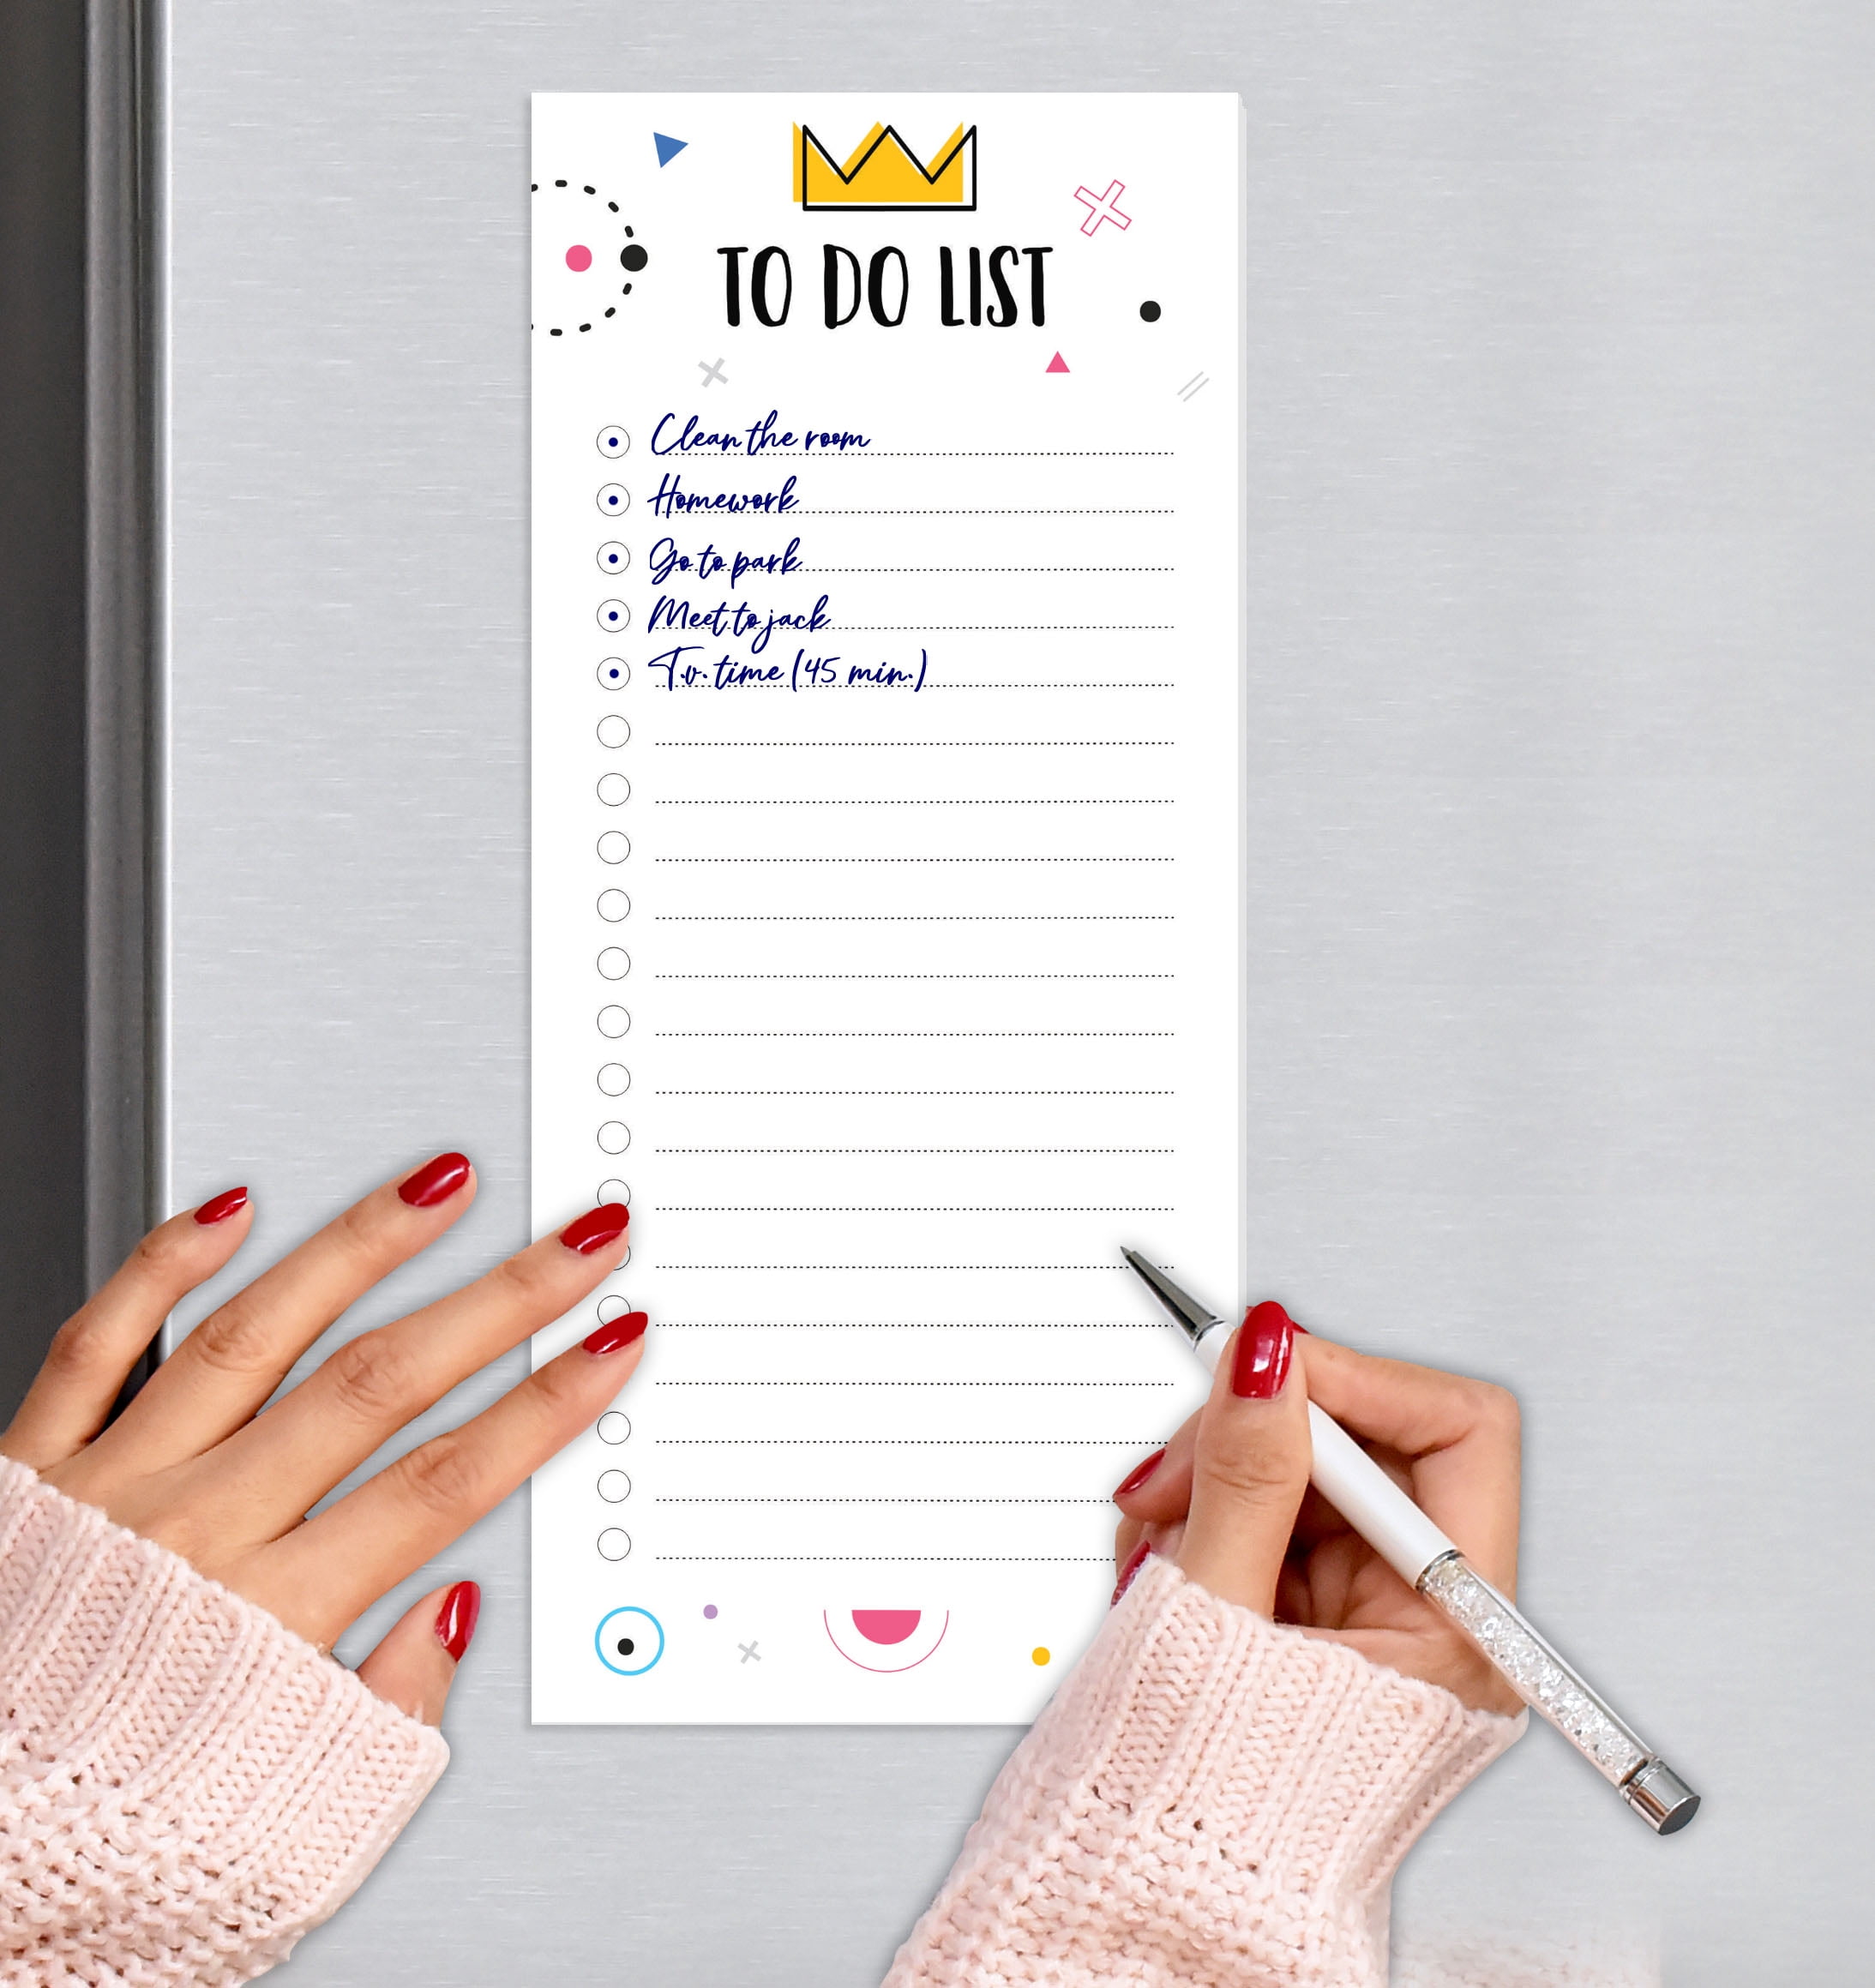 TO DO LIST
Clean the room
Homework
Go to park
Meet to jack
T.v. time (45 min.)